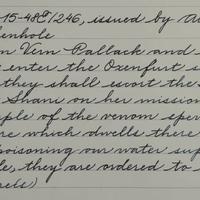 15-48E/246, issued by Au
enhole
n Vern Pallack and
enter the Oxenfurt s
they shall escort the S
Shani on her mission
ple of the venom spew
re which dwells there
poisoning our water sup
le, they are ordered to
eels)